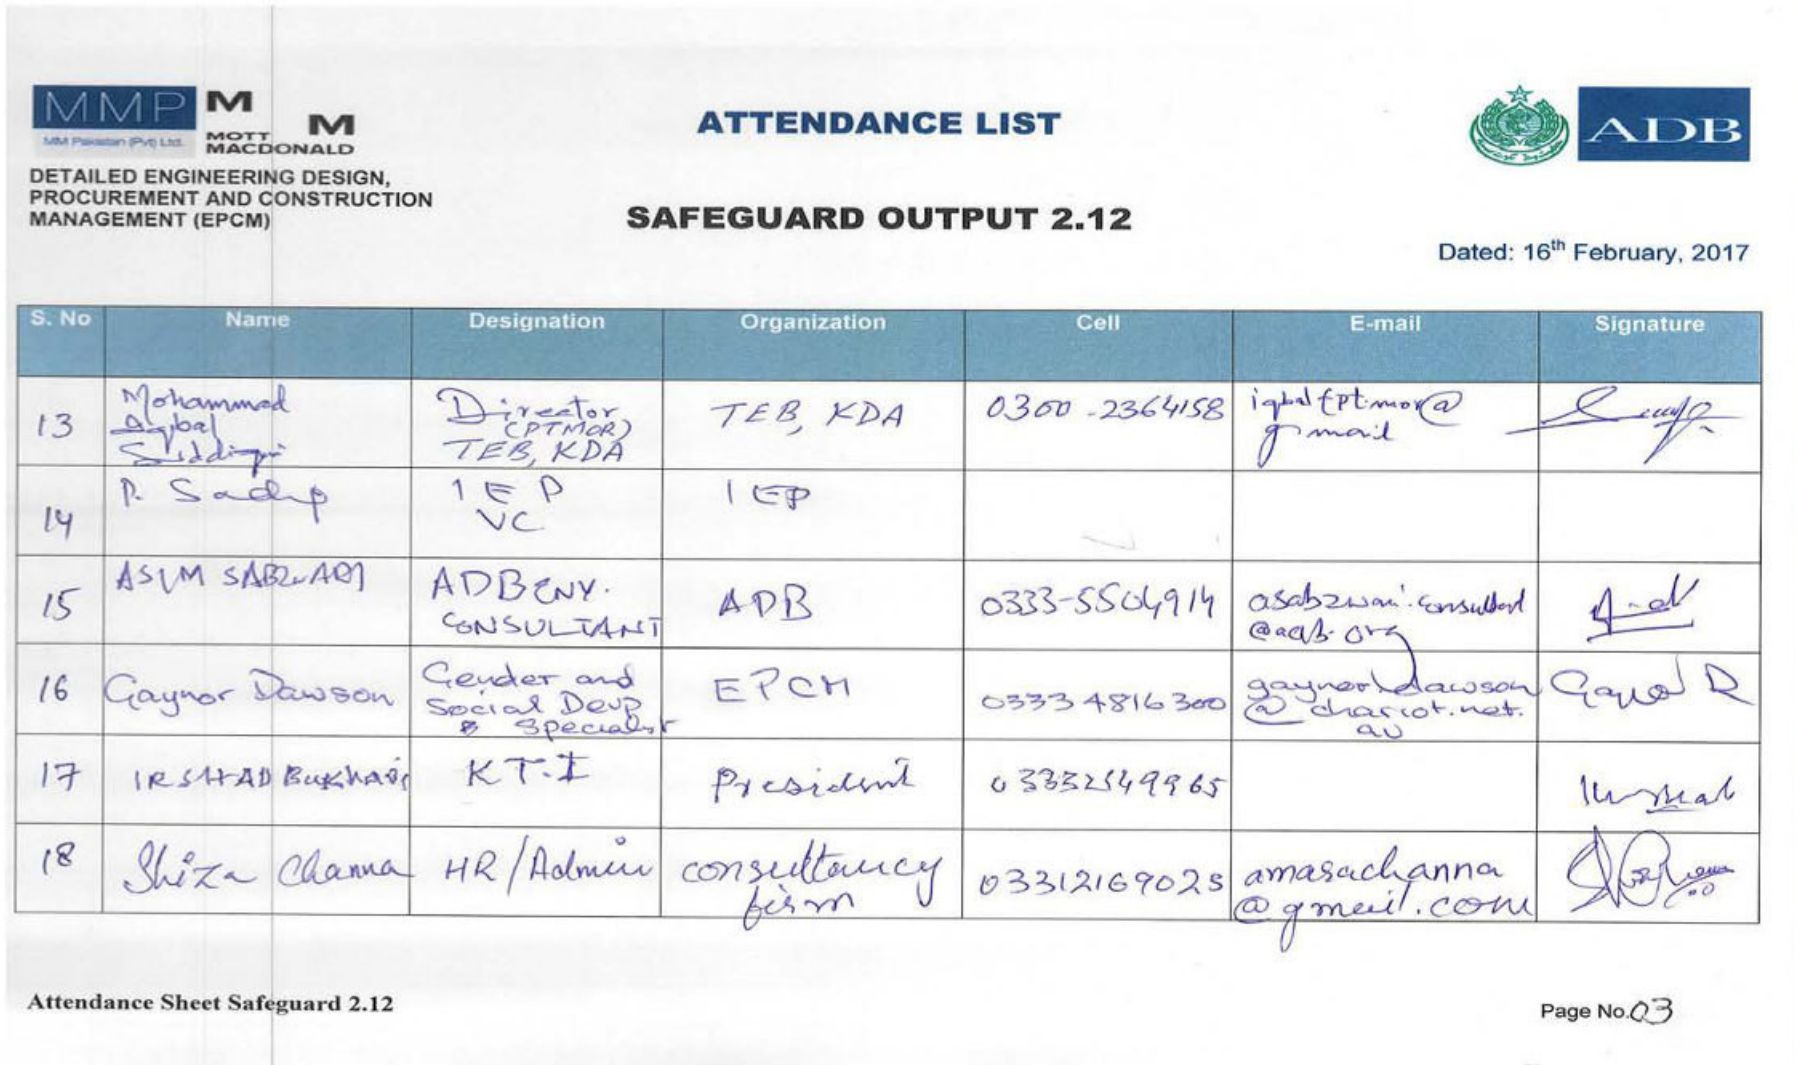 MMP
MM Pakistan (Pvt) Ltd.
M
M
MOTT
MACDONALD
DETAILED ENGINEERING DESIGN,
PROCUREMENT AND CONSTRUCTION
MANAGEMENT (EPCM)
ATTENDANCE LIST
SAFEGUARD OUTPUT 2.12
ADB
Dated: 16th February, 2017
S. No Name Designation Organization Cell E-mail Signature
13
Mohammad
Iqbal
Siddiqui
Director
(PTMOR)
TEB, KDA
TEB, KDA
0300-2364158
@
gmail
14
P.
IEP
VC
IEP
15
ASIM SABZWARI
ADB ENV.
CONSULTANT
ADB
0333-5504914
asabzwari.consultant
@adb.org
16
Gaynor Dawson
Gender and
Social Devp
Specialist
EPCM
0333 4816300
gaynor.dawson
@chariot.net.
au
17
IRSHAD Bukhari
K T.I
President
03332149965
18
Shiza Channa
HR/Admin
consultancy
firm
03312169025
amasachanna
@gmail.com
Attendance Sheet Safeguard 2.12
Page No. 03